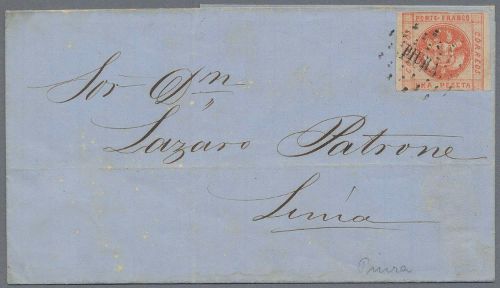 PORTE FRANCO
CORREOS
PIURA
UNA PESETA
Sor Dn
Lazaro Patrone
Lima
Piura